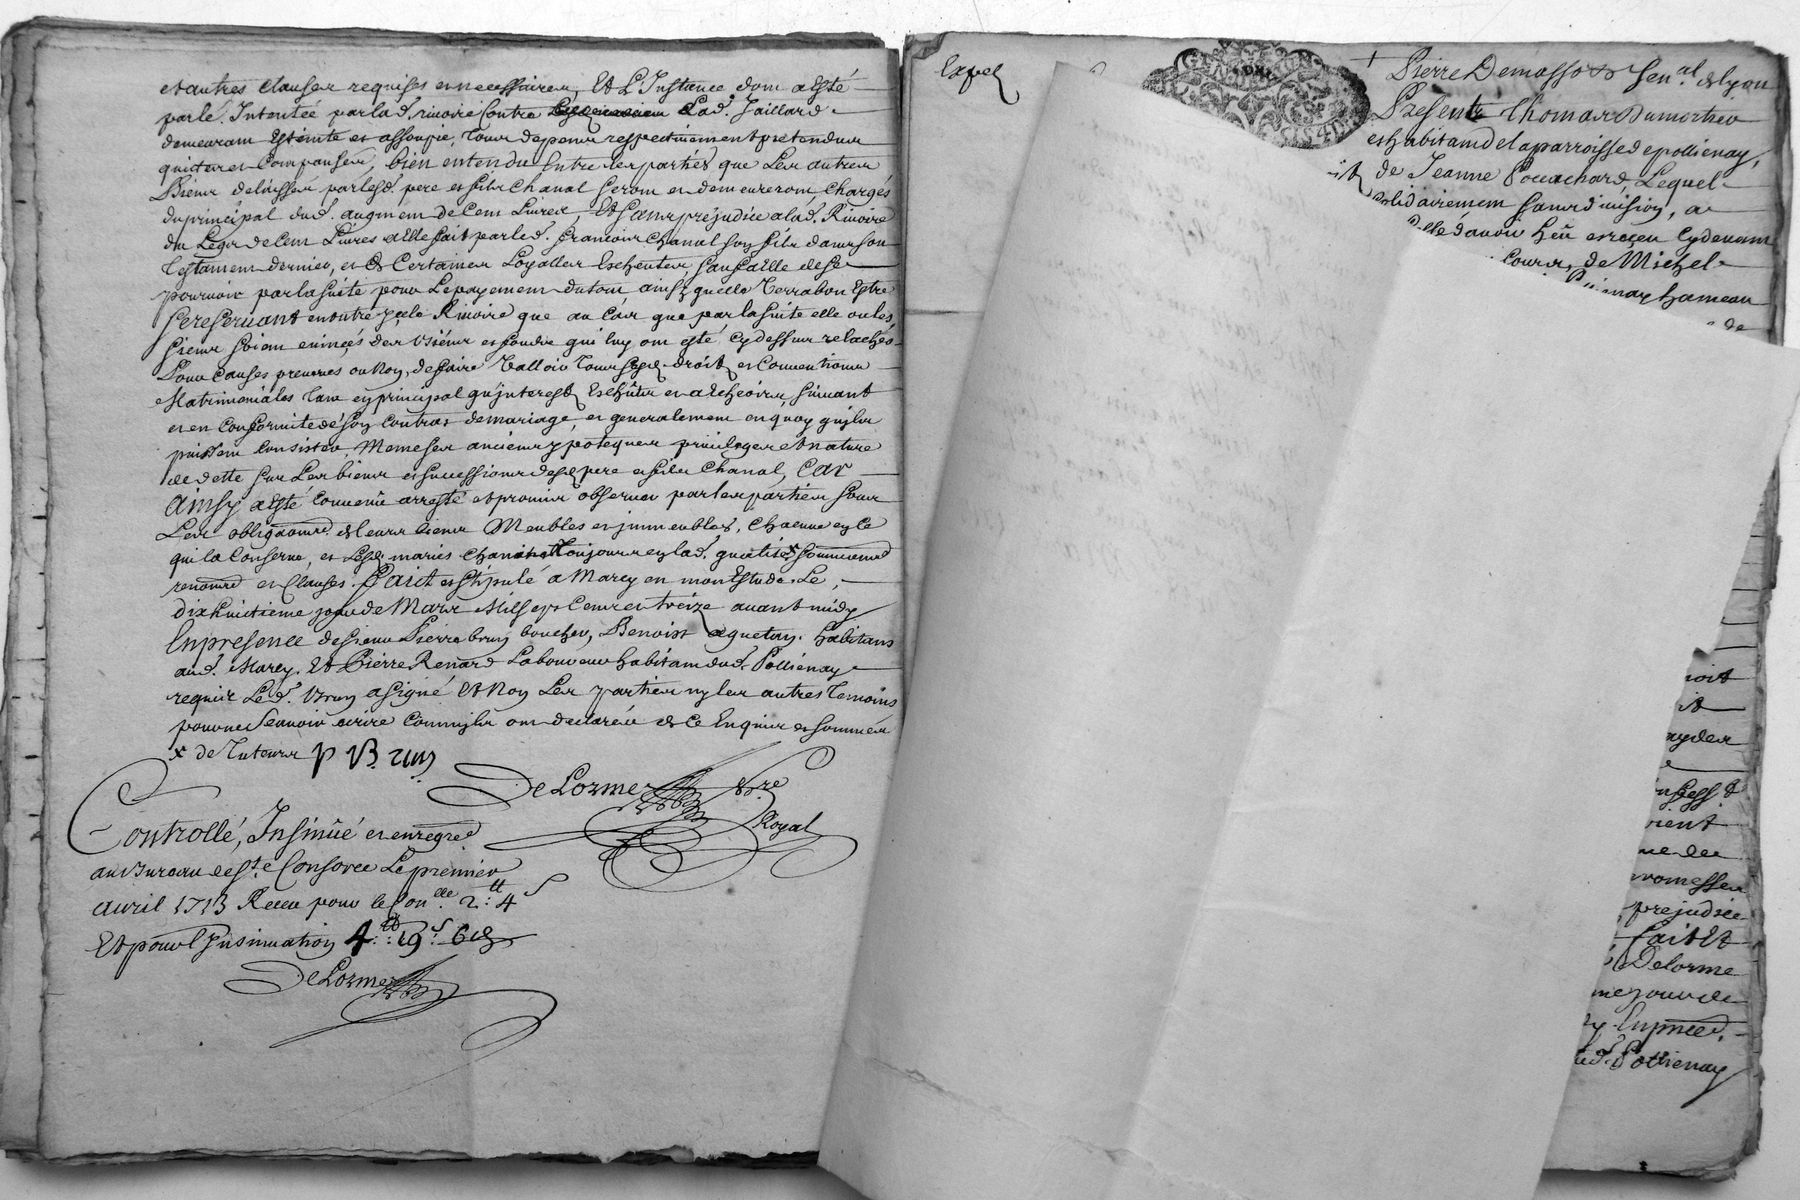 et autres clauses requises et necessaires, Et L'Instance dont a esté
parlé Intentée par lad. rivoire Contre Lad. Jaillard
demeurant Esteinte et assoupie, tous depens respectivement pretendus
quictes et Compansés, bien entendu Entre les parties que Les autres
Biens delaissés par lesd. pere et fils Chanal seront et demeureront Chargés
du principal dud. augment de Cent Livres, Et sans prejudice a lad. Rivoire
du Legs de Cent Livres a Elle fait par led. francois Chanal son fils dans son
Testament dernier, et de Certaines Loyalles Escheutes, sauf a Elle de se
pourvoir par la suite pour Le payement du tout ainsy quelle Verra bon Estre
se reservant en outre ycelle Rivoire que au Cas que par la suite elle ou les
siens soient evincés des biens et fonds qui luy ont esté Cy dessus relachés
Pour Causes preveues ou Non, de faire Valloir Tous sesd. droits et Conventions
Matrimoniales tant en principal qu'interests Escheus et a Escheoir, suivant
et en Conformité de son Contrat de mariage, et generalement en quoy qu'ils
puissent Consister, Memes ses anciens ypoteques privileges et nature
de dette sur Les biens et successions desd. pere et fils Chanal, Car
Ainsy a esté Convenu arresté et promis observer par les parties sous
Les obliga͠ons de Leurs biens Meubles et immeubles, Chacune en Ce
qui la Conserne, et Lesd. mariés Chanal Toujours en lad. qualité x soummions
renons et Clauses. Faict et stipulé a Marcy en mon Estude Le
dixhuictieme jour de Mars Mil sept Cents et treize avant midy
En presence de sieur Pierre brun boucher, Benoist aguetan, habitans
aud. Marcy, Et Pierre Renard Laboureur habitant dud. Pollienay
requis Led. Brun a signé Et Non Les parties ny les autres temoins
pour ne sçavoir écrire Comm'ils ont declaré de Ce Enquis et sommés
x de Tuteurs P Brun
DeLorme No.re
Royal
Controllé, Insinüé et enregré
au Bureau de S.te Consorce Le premier
avril 1713 Receu pour le Con.lle 2 ₶: 4 s
Et pour l'Insinuation 4 ₶: 19 s: 6 d
DeLorme
Expé
Pierre Demasso Sen.al de Lyon
Present Thomas Dumortier
et habitant de la parroisse de pollienay,
de Jeanne Pouachard, Lequel
solidairement sans division, a
d'avoir heu et reçeu Cy devant
Cours, de Michel
hameau
de
noit
it
ny les
rent
me de
promesses
prejudice
fait Et
Delorme
me jour de
En pnce d.
ud. Pollienay